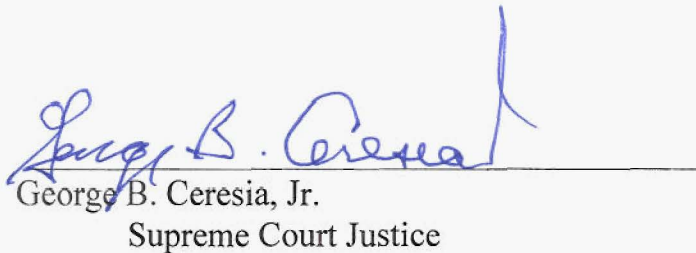 George B. Ceresia
George B. Ceresia, Jr.
Supreme Court Justice